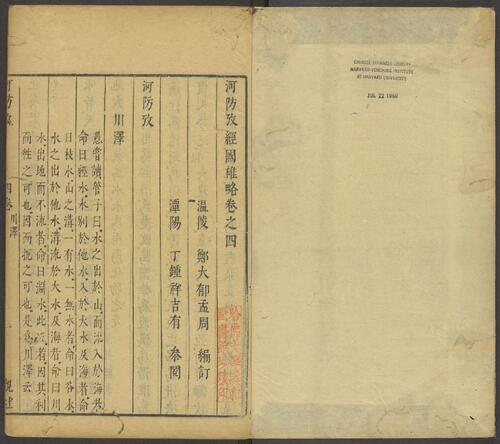 河防攷經國雄略卷之四
温陵 鄭大郁孟周 編訂
潭陽 丁鍾祥吉有 參閱
河防攷
川澤
愚嘗讀管子曰水之出於山而流入於海者
命曰經水水別於他水入於大水及海者命
曰枝水山之溝一有水一無水者命曰谷水
水之出於他水溝流於大水及海者命曰川
水出地而不流者命曰淵水此五者因其利
而徃之可也因而扼之可也是為川澤云
河防攷
四卷川澤
觀社
CHINESE-JAPANESE LIBRARY
HARVARD-YENCHING INSTITUTE
AT HARVARD UNIVERSITY
JUL 22 1960